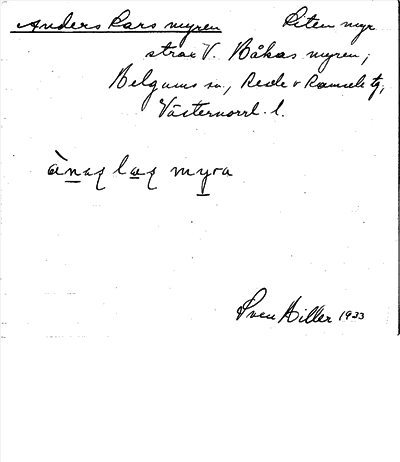 Anders Lars myren Liten myr
strax V. Båkas myren,
Helgums sn, Resele o Ramsele tg,
Västernorrl. l.
ànas las myra
Sven Hiller 1933